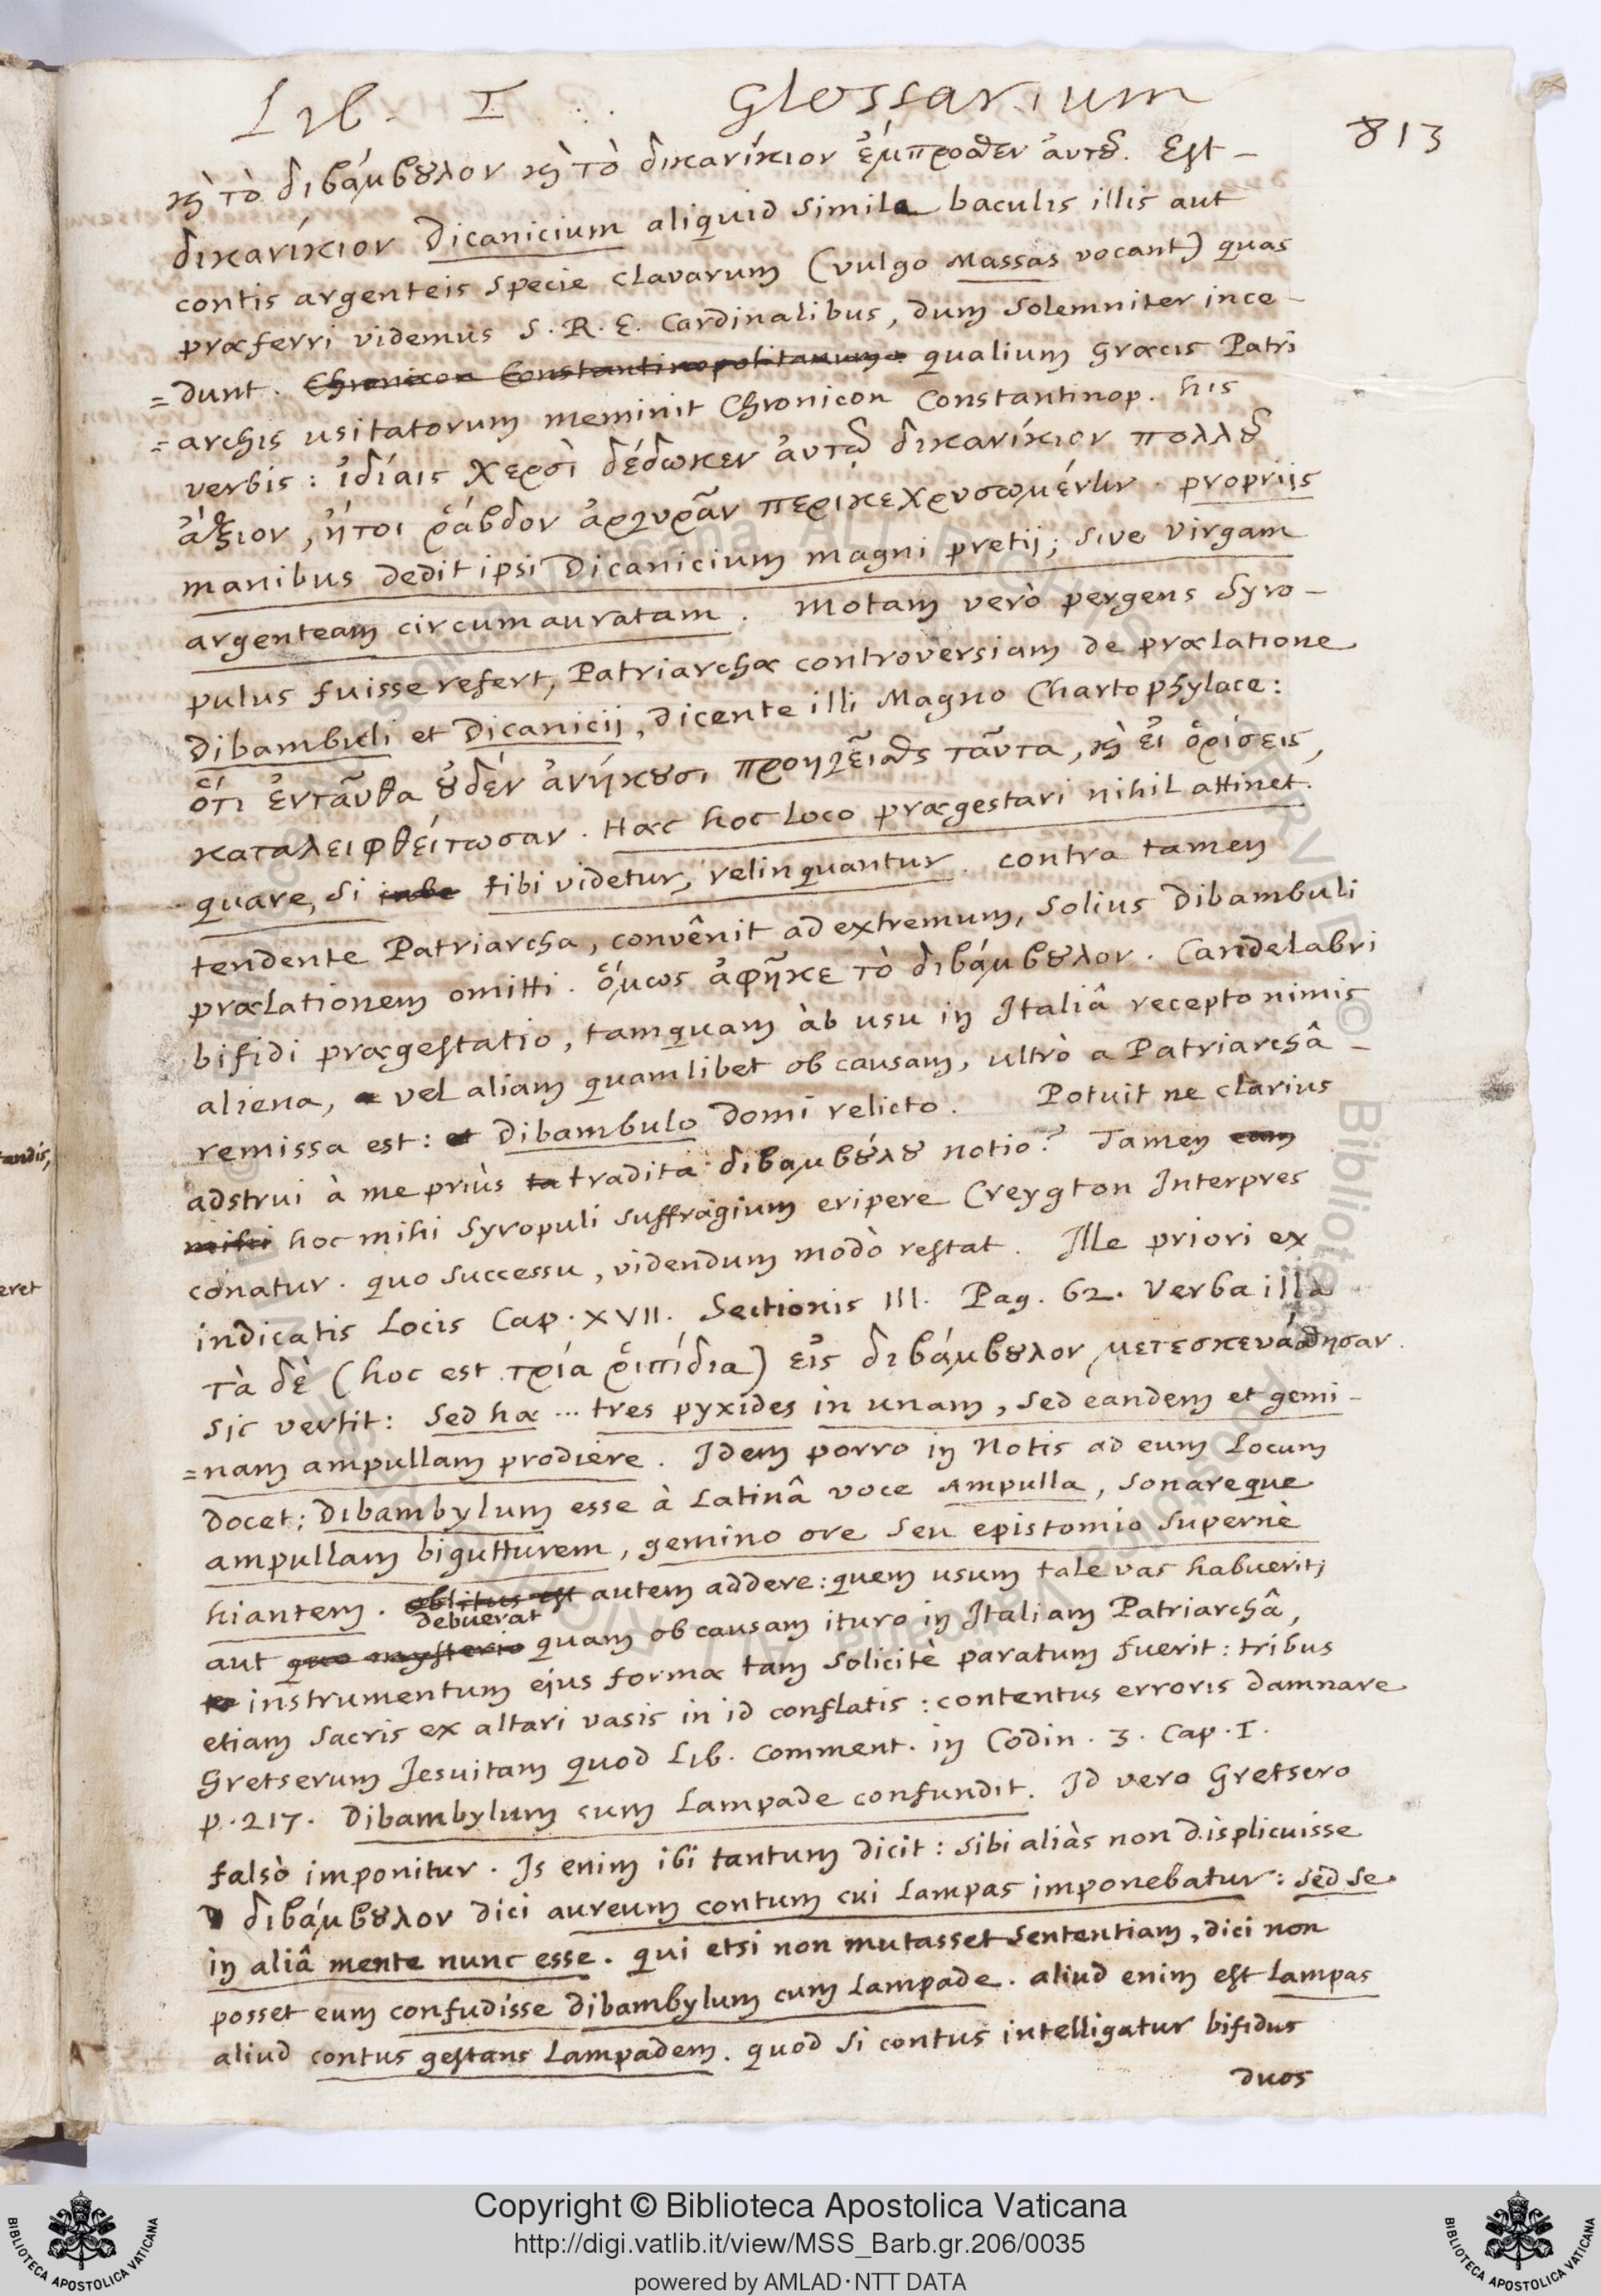 Lib. I. Glossarium
813
καὶ τὸ διβάμβουλον καὶ τὸ δικανίκιον ἔμπροσθεν ἀυτοῦ. Est
δικανίκιον Dicanicium aliquid simile baculis illis aut
contis argenteis specie clavarum (vulgo Massas vocant) quas
præferri videmus S. R. E. Cardinalibus, dum solemniter ince-
=dunt. Chronicon Constantinopolitanum qualium Græcis Patri
=archis usitatorum meminit Chronicon Constantinop. his
verbis: ἰδίαις χερσὶ δέδωκεν ἀυτῷ δικανίκιον πολλοῦ
ἄξιον, ἤτοι ῥάβδον ἀργυρᾶν περικεχρυσωμένην. propriis
manibus dedit ipsi Dicanicium magni pretij; sive virgam
argenteam circumauratam. Motam verò pergens Syro-
pulus fuisse refert, Patriarchæ controversiam de prælatione
Dibambuli et Dicanicij, dicente illi Magno Chartophylace:
ὅτι ἐνταῦθα οὐδὲν ἀνήκουσι προηγεῖσθαι ταῦτα, καὶ εἰ ὁρίσεις,
καταλειφθείτωσαν. Hæc hoc loco prægestari nihil attinet.
quare, si iube tibi videtur, relinquantur. contra tamen
tendente Patriarcha, convênit ad extremum, solius Dibambuli
prælationem omitti. ὅμως ἀφῆκε τὸ διβάμβουλον. Candelabri
bifidi prægestatio, tamquam àb usu in Italiâ recepto nimis
aliena, vel aliam quamlibet ob causam, ultrò a Patriarchâ -
remissa est: et Dibambulo domi relicto. Potuit ne clarius
adstrui à me priùs ta tradita διβαμβούλου notio? Tamen eam
mihi hoc mihi Syropuli suffragium eripere Creygton Interpres
conatur. quo successu, videndum modò restat. Ille priori ex
indicatis Locis Cap. XVII. Sectionis III. Pag. 62. Verba illa
τὰ δὲ (hoc est τρία ῥιπίδια) εἰς διβάμβουλον μετεσκευάσθησαν.
sic vertit: Sed hæ ... tres pyxides in unam, sed eandem et gemi-
=nam ampullam prodiere. Idem porro in Notis ad eum Locum
docet; Dibambylum esse à Latinâ voce Ampulla, sonareque
ampullam bigutturem, gemino ore seu epistomio supernè
hiantem. oblitus est autem addere: quem usum tale vas habuerit;
debuerat
aut quo mysterio quam ob causam ituro in Italiam Patriarchâ,
instrumentum ejus formæ tam solicitè paratum fuerit: tribus
etiam sacris ex altari vasis in id conflatis: contentus erroris damnare
Gretserum Jesuitam quod Lib. Comment. in Codin. 3. Cap. I.
p. 217. Dibambylum cum Lampade confundit. Id vero Gretsero
falsò imponitur. Is enim ibi tantum dicit: sibi aliàs non displicuisse
διβάμβουλον dici aureum contum cui Lampas imponebatur: sed se
in aliâ mente nunc esse. qui etsi non mutasset sententiam, dici non
posset eum confudisse dibambylum cum Lampade. aliud enim est Lampas
aliud contus gestans Lampadem. quod si contus intelligatur bifidus
duos
tandis,
eret
Copyright © Biblioteca Apostolica Vaticana
http://digi.vatlib.it/view/MSS_Barb.gr.206/0035
powered by AMLAD·NTT DATA
BIBLIOTECA APOSTOLICA VATICANA
BIBLIOTECA APOSTOLICA VATICANA